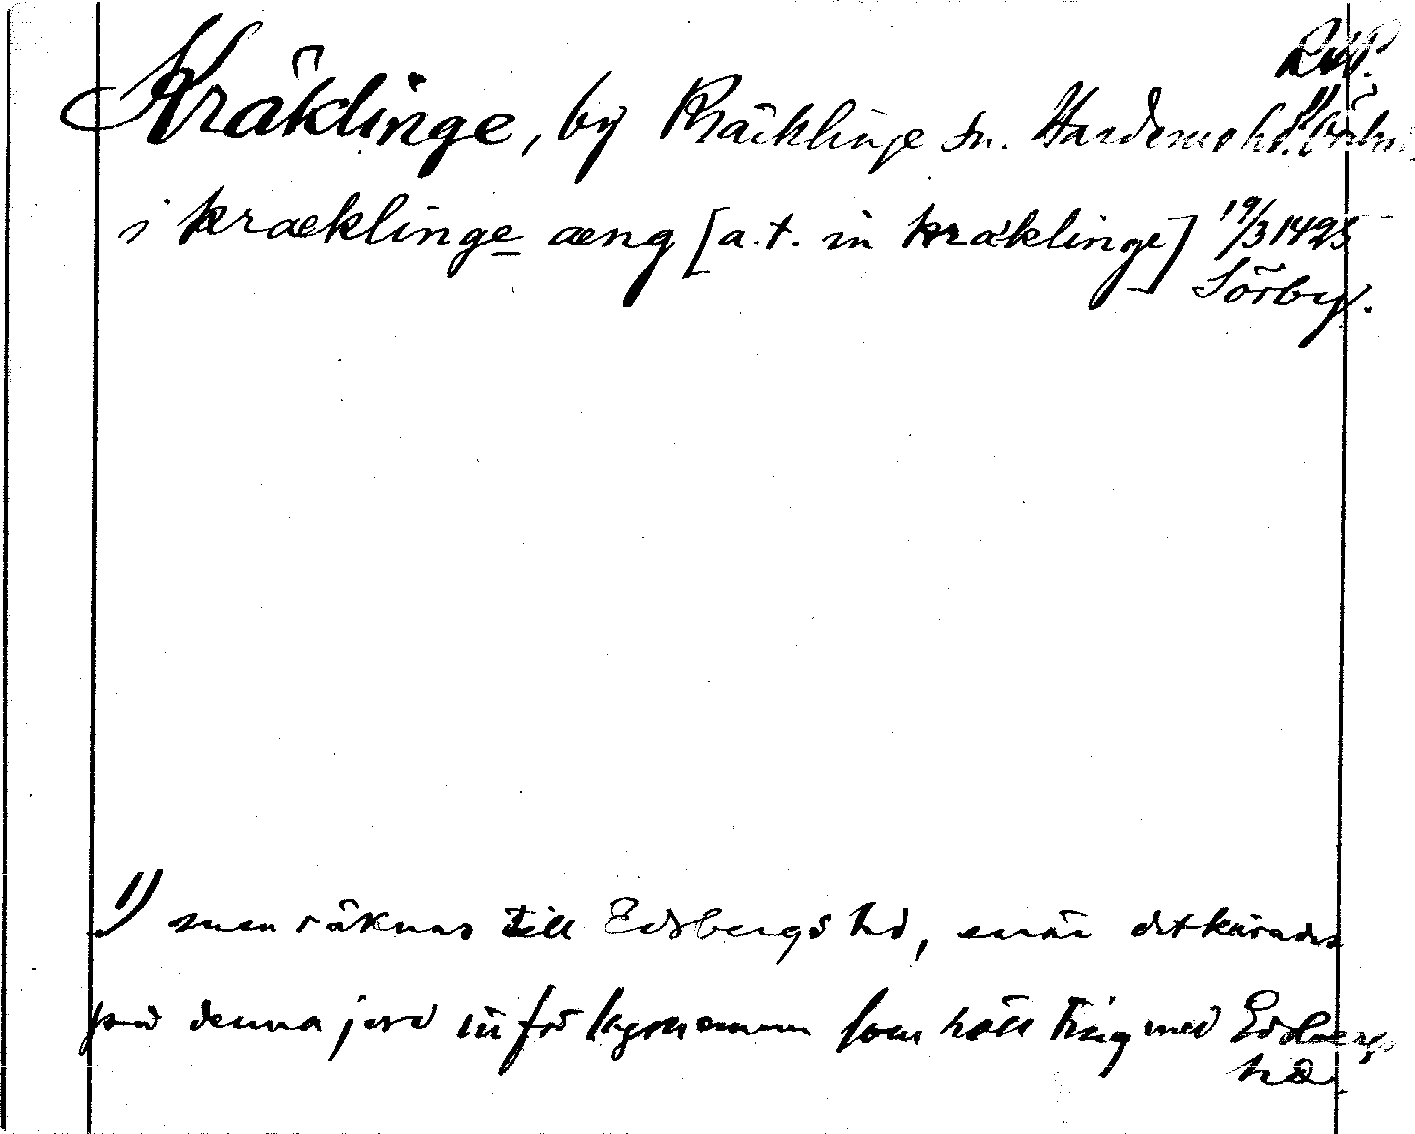 RAP.
Kräklinge, by Kräcklinge sn. Hardemo hd.¹⁾ Örebro
i kræklinge æng [a.t. in kräklinge] 19/3 1495
Sörby.
1) men räknas till Edsbergs hd, enär det kärades
på denna jord inför som höll ting med Edsbergs
hd.